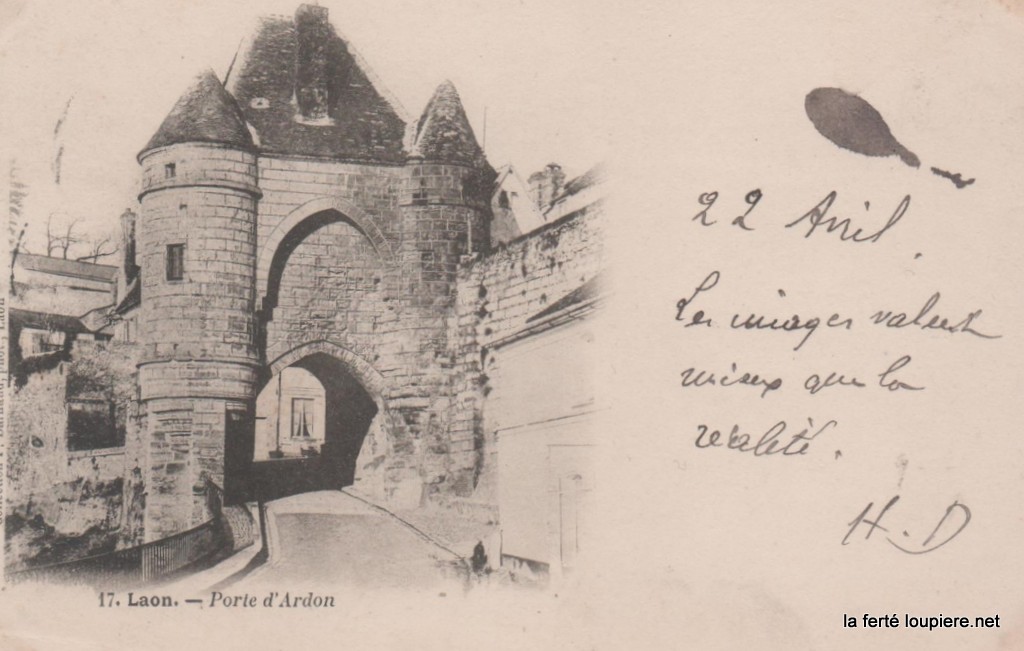 22 Avril.
Les images valent
mieux que la
réalité.
H.D
17. Laon. — Porte d'Ardon
la ferté loupiere.net